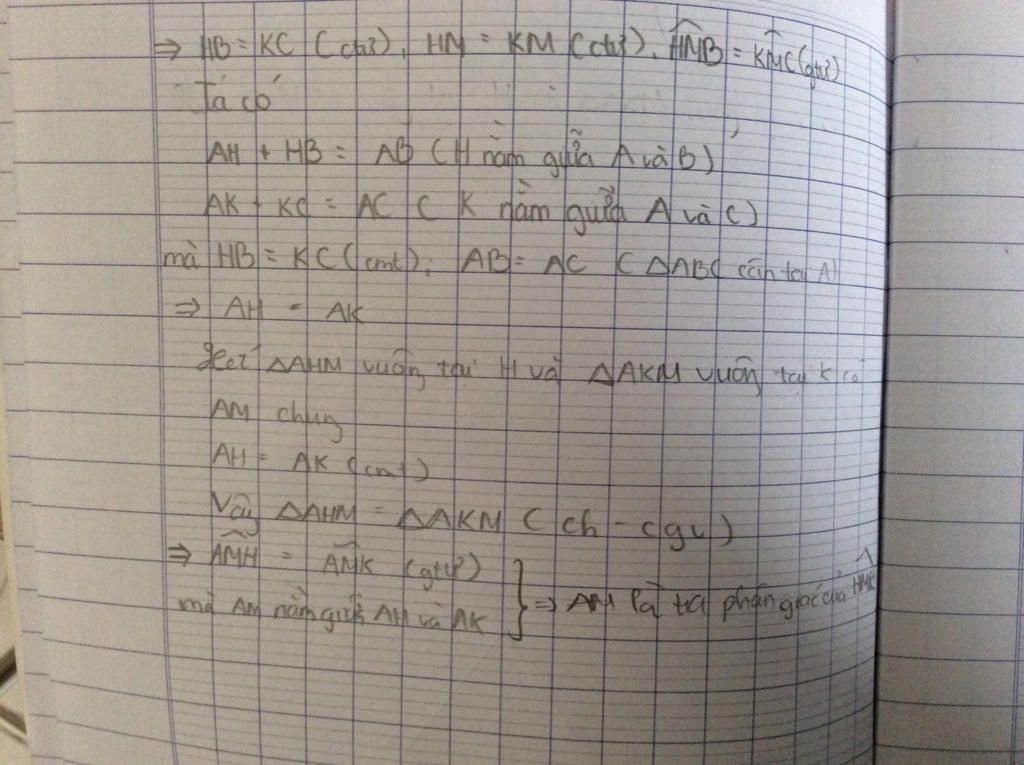 ⇒ HB = KC (ctứ), HM = KM (ctứ), HMB = KMC (gtứ)
Ta có
AH + HB = AB (H nằm giữa A và B)
AK + KC = AC ( K nằm giữa A và C)
mà HB = KC (cmt); AB = AC ( ΔABC cân tại A)
⇒ AH = AK
Xét ΔAHM vuông tại H và ΔAKM vuông tại K có
AM chung
AH = AK (cmt)
Vậy ΔAHM = ΔAKM ( ch - cgv )
⇒ AMH = AMK (gtứ)
mà AM nằm giữa AH và AK } ⇒ AM là tia phân giác của HMK